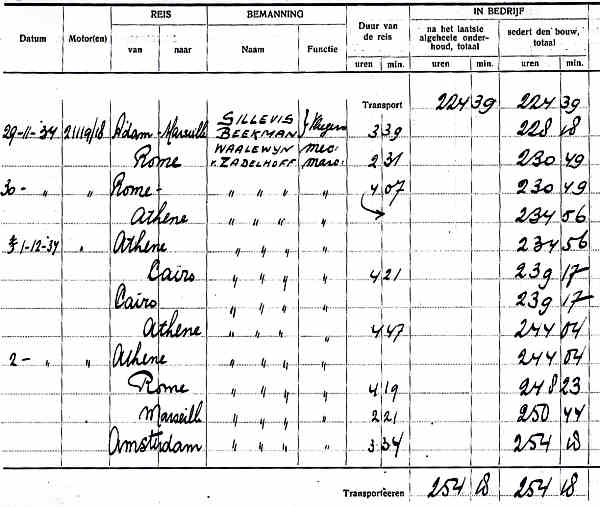 REIS BEMANNING Duur van de reis IN BEDRIJF
Datum Motor(en) van naar Naam Functie na het laatste algeheele onderhoud, totaal sedert den bouw, totaal
uren min. uren min. uren min.
Transport 224 39 224 39
29-11-34 A'dam - Marseille SILLEVIS BEEKMAN 3 39 228 18
Rome WAALEWYN v. ZADELHOFF mec: marc: 2 31 230 49
30- " " Rome - " " " " " 4 07 230 49
Athene " " " " " 234 56
1-12-34 " Athene " " " " " 234 56
Cairo " " " " " 4 21 239 17
Cairo " " " " " 239 17
Athene " " " " " 4 47 244 04
2- " " Athene " " " " " 244 04
Rome " " " " " 4 19 248 23
Marseill " " " " " 2 21 250 44
Amsterdam " " " " " 3 34 254 18
Transporteeren 254 18 254 18